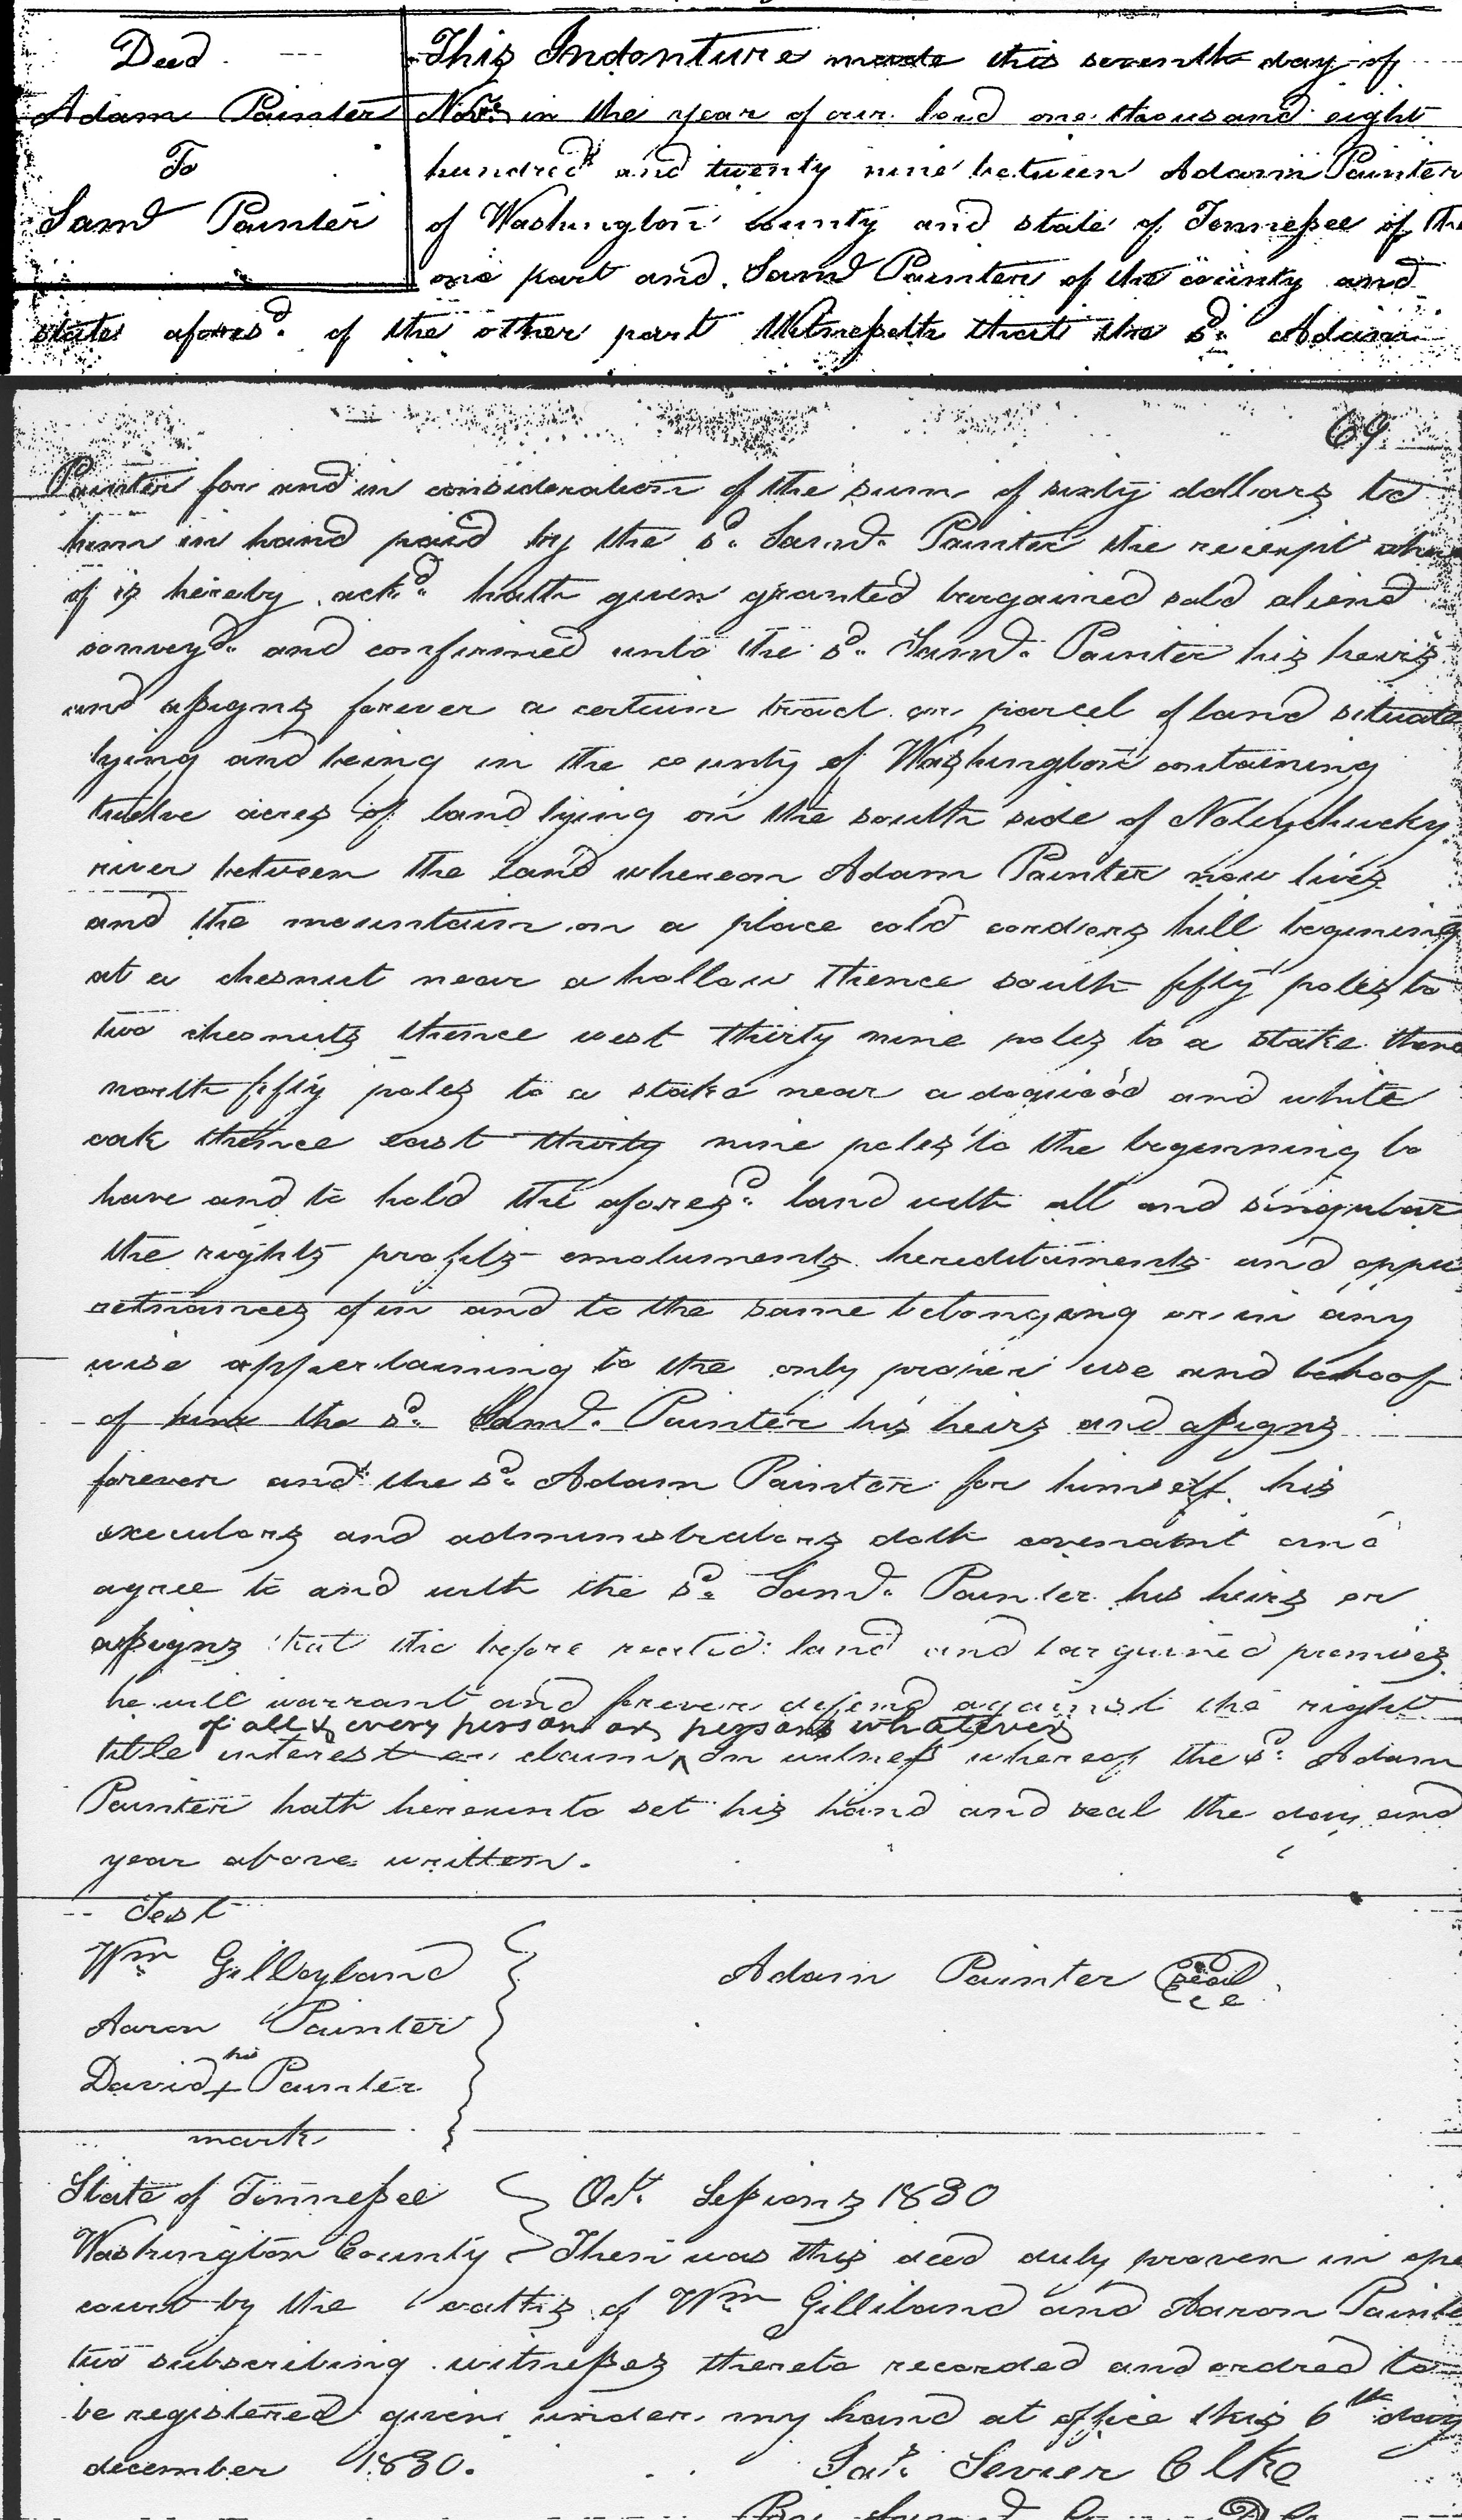 Deed
Adam Painter
To
Saml Painter
This Indenture made this seventh day of
Novr. in the year of our lord one thousand eight
hundred and twenty nine between Adam Painter
of Washington county and state of Tennessee of the
one part and Saml Painter of the county and
state aforesd. of the other part Witnesseth that the sd. Adam
69
Painter for and in consideration of the sum of sixty dollars to
him in hand paid by the sd. Saml. Painter the reciept where
of is hereby ackd. hath given granted bargained sold aliend
conveyd. and confirmed unto the sd. Saml. Painter his heirs
and assigns forever a certain tract or parcel of land situate
lying and being in the county of Washington containing
twelve acres of land lying on the south side of Noleychucky
river between the land whereon Adam Painter now lives
and the mountain on a place cald hill begining
at a chesnut near a hollow thence south fifty poles to
two chesnuts thence west thirty nine poles to a stake thence
north fifty poles to a stake near a dogwood and white
oak thence east thirty nine poles to the beginning to
have and to hold the aforesd. land with all and singular
the rights profits emoluments hereditaments and appu
retnances of in and to the same belonging or in any
wise appertaining to the only proper use and behoof
of him the sd. Saml. Painter his heirs and assigns
forever and the sd. Adam Painter for himself his
executors and administrators doth covenant and
agree to and with the sd. Saml. Painter his heirs or
assigns that the before recited land and bargained premises
he will warrant and forever defend against the right
of all & every person or persons whatever
title interest or claim ^ In witness whereof the sd. Adam
Painter hath hereunto set his hand and seal the day and
year above written.
Test
Wm Gilleyland
Adam Painter seal
Aaron Painter
his
David + Painter
mark
State of Tennessee Oct. Sessions 1830
Washington County Then was this deed duly proven in ope
court by the oaths of Wm Gilliland and Aaron Painte
two subscribing witnesses thereto recorded and ordred to
be registered given under my hand at office this 6th day
december 1830.
Jas. Sevier Clke